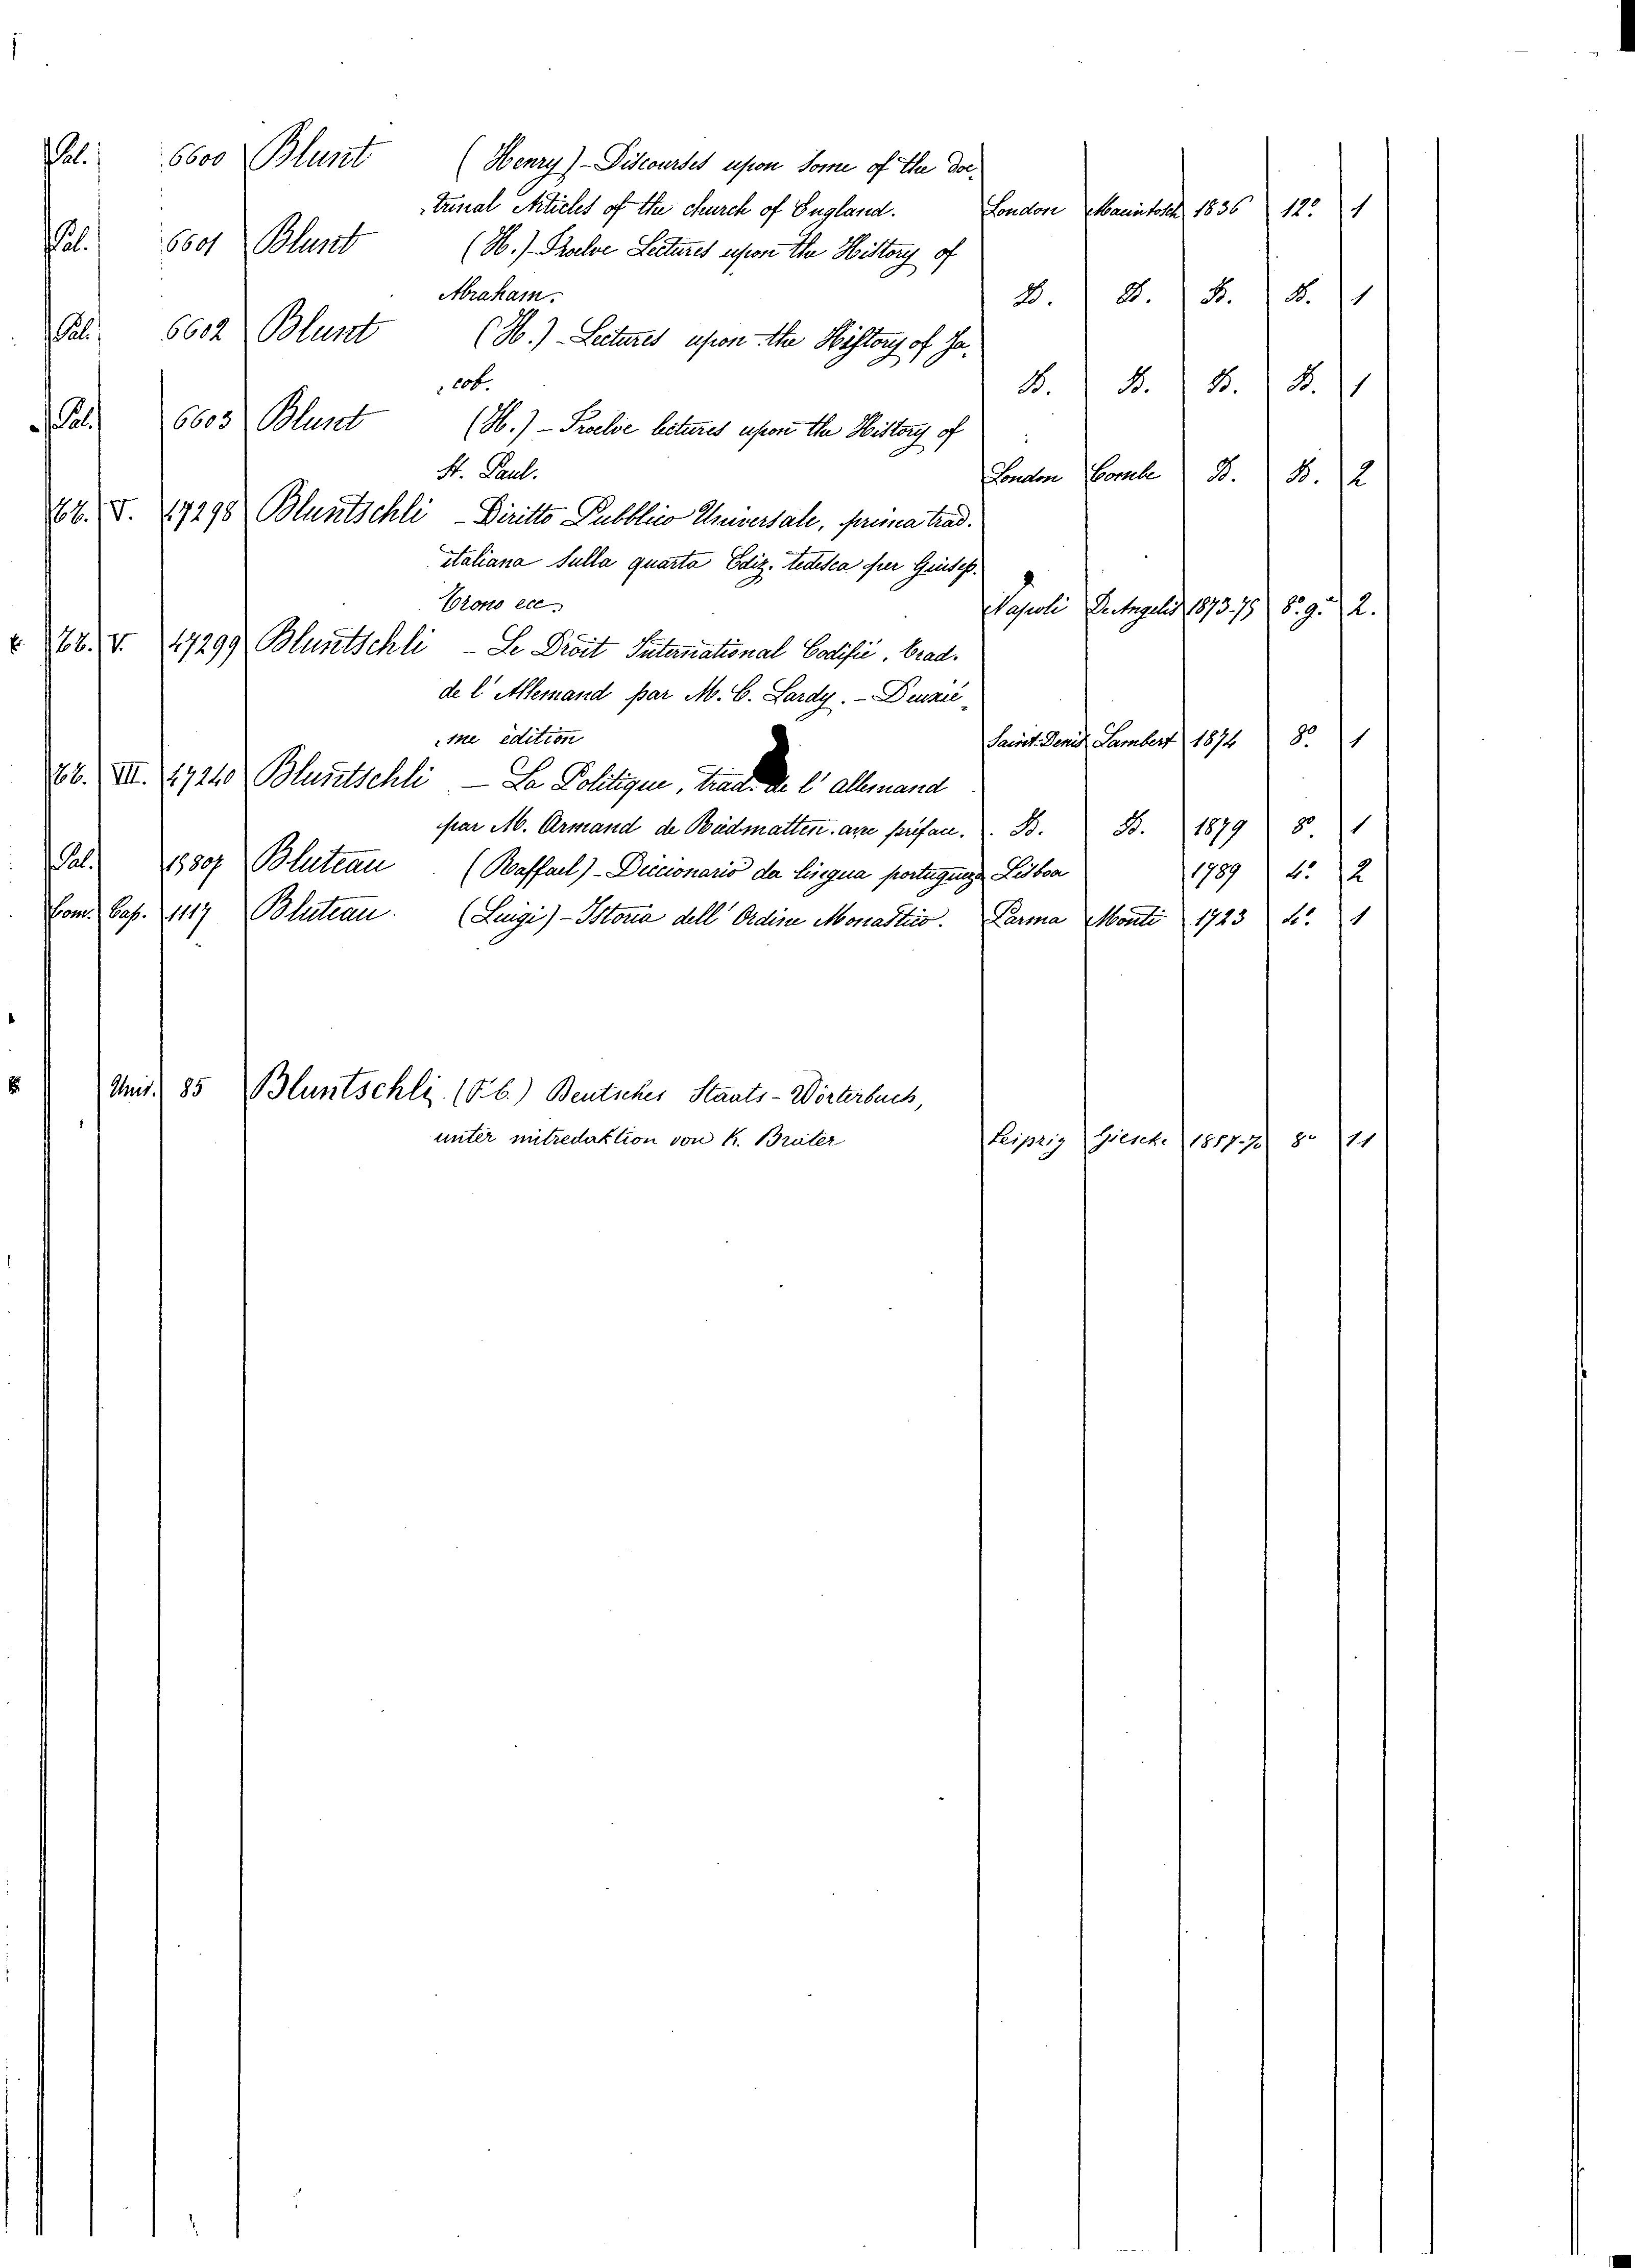 Pal. 6600 Blunt (Henry) - Discourses upon some of the doc-
trinal Articles of the church of England. London Macintosh 1836 12º 1
Pal. 6601 Blunt (H.) - Twelve Lectures upon the History of
Abraham. D. D. D. D. 1
Pal. 6602 Blunt (H.) - Lectures upon the History of Ja-
cob. D. D. D. D. 1
Pal. 6603 Blunt (H.) - Twelve lectures upon the History of
St. Paul. London Combe D. D. 2
V. 17298 Bluntschli - Diritto Pubblico Universale, prima trad.
italiana sulla quarta Ediz. tedesca per Giusep.
Trono ecc. Napoli De Angelis 1873-75 8º g. 2.
V. 17299 Bluntschli - Le Droit International Codifié, trad.
de l'Allemand par M. C. Lardy. - Deuxiè-
me édition Saint-Denis Lambert 1874 8º 1
VII. 17240 Bluntschli - La Politique, trad. de l'allemand
par M. Armand de Riedmatten. avec préface. D. D. 1879 8º. 1
Pal. 1580 Bluteau (Raffael) - Diccionario da lingua portugueza Lisboa 1789 4º 2
Com. Cap. 1117 Bluteau. (Luigi) - Istoria dell' Ordine Monastico. Parma Monti 1723 4º. 1
Univ. 85 Bluntschli. Deutsches Staats-Wörterbuch,
unter mitredaktion von K. Brater Leipzig Giesche 1857-70 8º 11